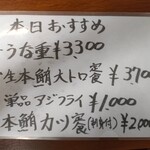 本日おすすめ
うな重 ¥3,300
生本鮪大トロ丼 ¥3,700
単品アジフライ ¥1,000
本鮪カツ丼 ¥2,000